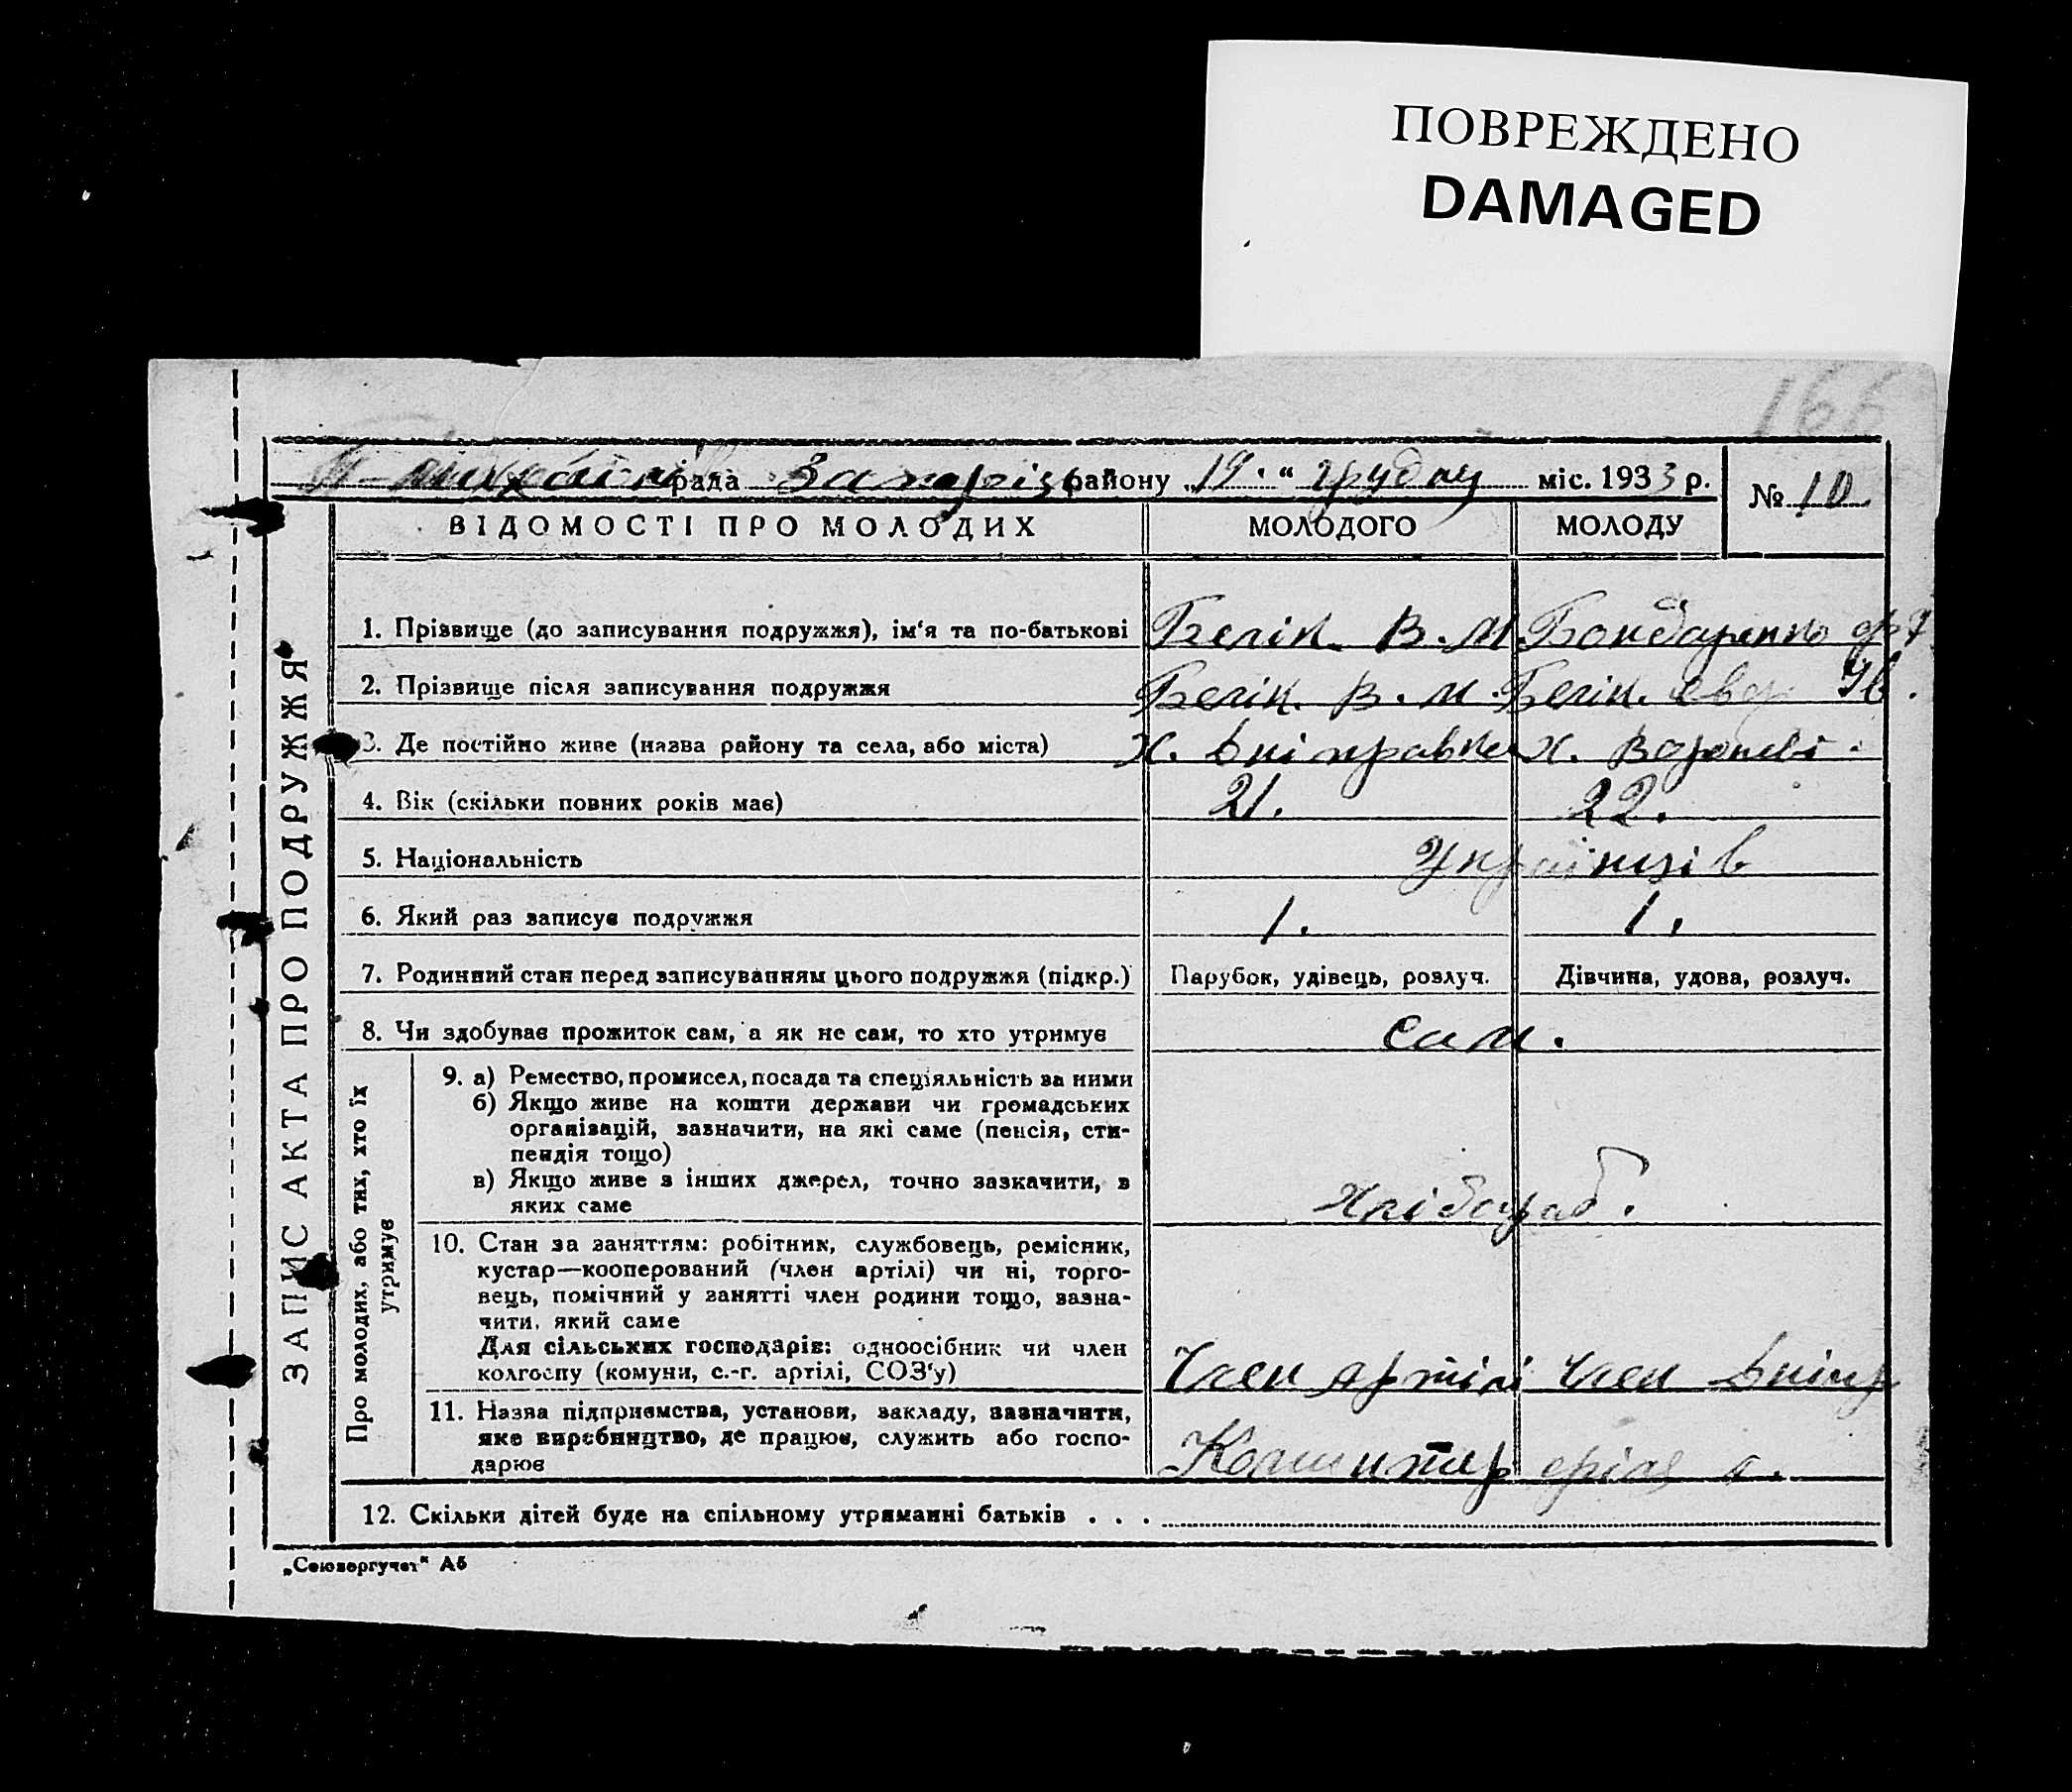 ПОВРЕЖДЕНО
DAMAGED
166
рада Запоріз району „19“ грудня міс. 1933 р. № 10
ВІДОМОСТІ ПРО МОЛОДИХ МОЛОДОГО МОЛОДУ
ЗАПИС АКТА ПРО ПОДРУЖЖЯ
1. Прізвище (до записування подружжя), ім‘я та по-батькові Белік. В. М. Бондаренко
2. Прізвище після записування подружжя Белік. В. М. Белік.
3. Де постійно живе (назва району та села, або міста) Х. Х.
4. Вік (скільки повних років має) 21. 22.
5. Національність Українців
6. Який раз записує подружжя 1. 1.
7. Родинний стан перед записуванням цього подружжя (підкр.) Парубок, удівець, розлуч. Дівчина, удова, розлуч.
8. Чи здобуває прожиток сам, а як не сам, то хто утримує сам.
Про молодих, або тих, хто їх
утримує
9. а) Ремество, промисел, посада та спеціяльність за ними
б) Якщо живе на кошти держави чи громадських
організацій, зазначити, на які саме (пенсія, сти-
пендія тощо)
в) Якщо живе з інших джерел, точно зазкачити, в
яких саме Хлібороб.
10. Стан за заняттям: робітник, службовець, ремісник,
кустар—кооперований (член артілі) чи ні, торго-
вець, помічний у занятті член родини тощо, зазна-
чити, який саме
Для сільських господарів: одноосібник чи член
колгоспу (комуни, с.-г. артілі, СОЗ‘у) Член артілі Член
11. Назва підприємства, установи, закладу, зазначити,
яке виробництво, де працює, служить або госпо-
дарює
12. Скільки дітей буде на спільному утриманні батьків . . .
„Союзоргучет“ А5